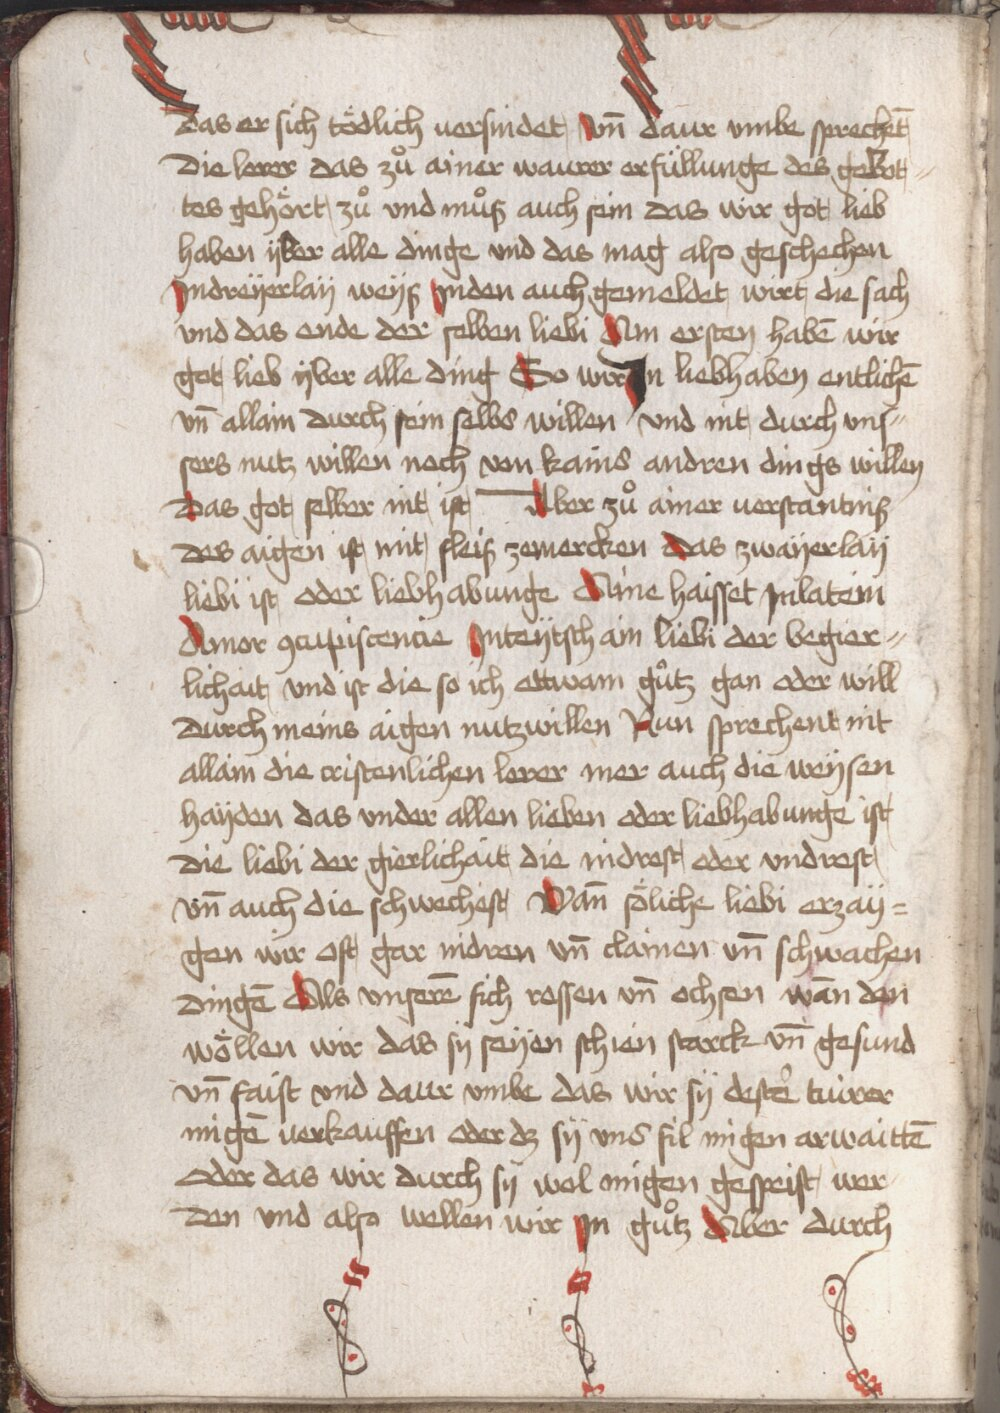 das er sich tödlich uersindet Vn̄ daur vmbe sprechēt
Die lerer das zů ainer waurer erfüllunge des gebot-
tes gehört zů vnd můß auch sein das wir got lieb
haben ÿber alle dinge vnd das mag also geschechen
Jndreÿerlaÿ weÿß Jnden auch gemeldet wirt die sach
vnd das ende der selben liebi Am ersten habē wir
got lieb ÿber alle ding So wir Jn liebhaben entlichē
vn̄ allain durch sein selbs willen vnd nit durch vns-
sers nutz willen noch von kains andren dings willen
Das got selber nit ist Aber zů ainer uerstantniß
des aigen ist mit fleiß zemercken Das zwaÿerlaÿ
liebi ist oder liebhabunge Aine haisset Jnlatein
Amor ꝯcupiscencie Jnteÿtsch ain liebi der begier-
lichait vnd ist die so ich ettwam gůtz gan oder will
durch meins aigen nutzwillen Nun sprechent nit
allain die cristenlichen lerer mer auch die weÿsen
haÿden das vnder allen lieben oder liebhabunge ist
die liebi der gierlichait die nidrest oder vndrest
vn̄ auch die schwechest Wan̄ söliche liebi erzaÿ-
gen wir oft gar nidren vn̄ clainen vn̄ schwachen
dingē Als vnserē fich rossen vn̄ ochsen wan̄ den
wöllen wir das sÿ seÿen schien starck vn̄ gesund
vn̄ faist vnd daur vmbe das wir sÿ destẽ tiurer
migē uerkauffen oder dz sÿ vns fil migen arwaittē
oder das wir durch sÿ wol migen gespeist wer
den vnd also wellen wir Jn gůtz Aber durch